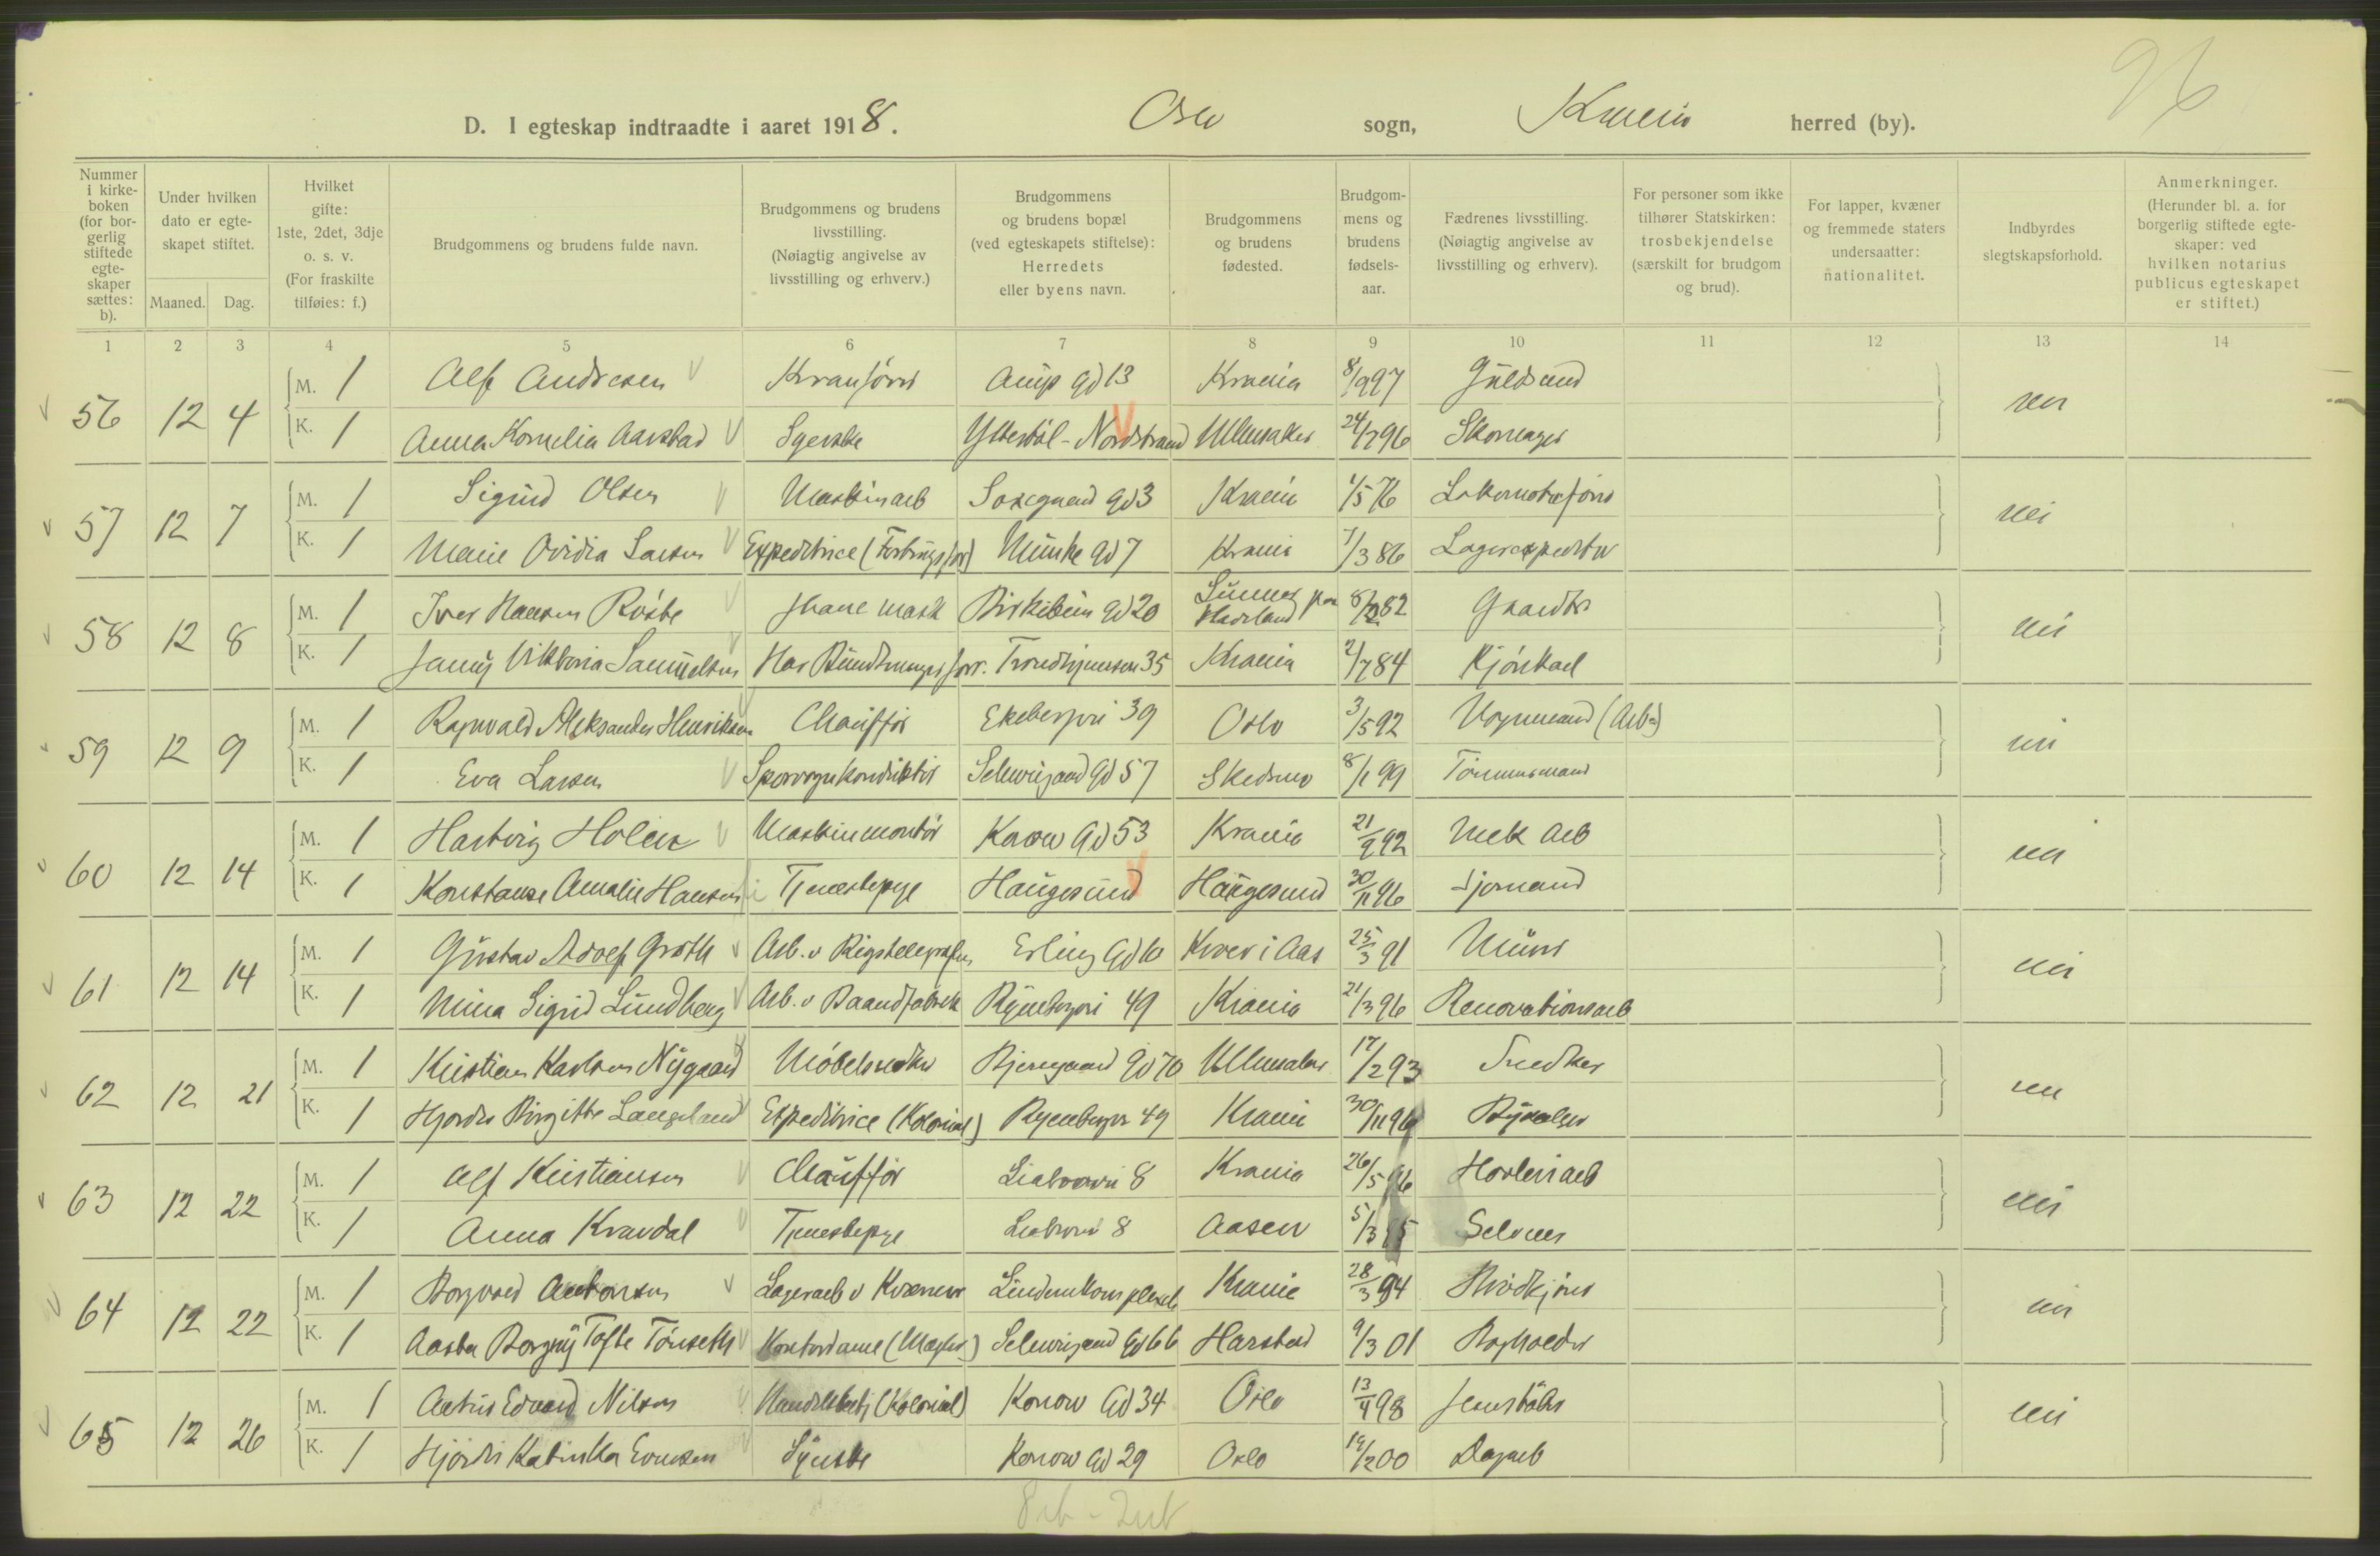 96
D. I egteskap indtraadte i aaret 1918. Oslo sogn, Krania herred (by).
Nummer i kirkeboken (for borgerlig stiftede egteskaper sættes: b).
Under hvilken dato er egteskapet stiftet.
Maaned. Dag.
Hvilket gifte: 1ste, 2det, 3dje o. s. v. (For fraskilte tilføies: f.)
Brudgommens og brudens fulde navn.
Brudgommens og brudens livsstilling. (Nøiagtig angivelse av livsstilling og erhverv.)
Brudgommens og brudens bopæl (ved egteskapets stiftelse): Herredets eller byens navn.
Brudgommens og brudens fødested.
Brudgommens og brudens fødselsaar.
Fædrenes livsstilling. (Nøiagtig angivelse av livsstilling og erhverv).
For personer som ikke tilhører Statskirken: trosbekjendelse (særskilt for brudgom og brud).
For lapper, kvæner og fremmede staters undersaatter: nationalitet.
Indbyrdes slegtskapsforhold.
Anmerkninger. (Herunder bl. a. for borgerlig stiftede egteskaper: ved hvilken notarius publicus egteskapet er stiftet.)
1 2 3 4 5 6 7 8 9 10 11 12 13 14
56 12 4 M. 1 Alf Andresen Kranfører Amp Gd 13 Krania 8/9 97 Guldsmed nei
K. 1 Anna Kornelia Aarstad Syerske Nordstrand Ullensaker 24/7 96 Skomager
57 12 7 M. 1 Sigurd Olsen Maskinarb Gd 3 Krania 1/5 76 Lokomotivfører nei
K. 1 Marie Ovidia Larsen Expeditrice Munke Gd 7 Krania 7/3 86 Lagerexpeditør
58 12 8 M. 1 Iver Hansen Birkebein Gd 20 Hadeland 82 Gaardbr nei
K. 1 Jenny Viktoria Samuelsen Trondhjemsvn 35 Krania 2/7 84 Kjørekarl
59 12 9 M. 1 Ragnvald Aleksander Henriksen Chauffør Ekebergvei 39 Oslo 3/5 92 Vognmand (Arb) nei
K. 1 Eva Larsen Sporvognkonduktør Schweigaard Gd 57 Skedsmo 8/1 99 Tømmermand
60 12 14 M. 1 Hartvig Holen Maskinmontør Konow Gd 53 Krania 21/9 92 Mek Arb nei
K. 1 Konstanse Amalie Hansen Tjenestepige Haugesund Haugesund 30/11 96 Sjømand
61 12 14 M. 1 Gustav Adolf Groth Arb. v Rigstelegrafen Erling Gd 10 Kroer i Aas 25/3 91 Murer nei
K. 1 Mina Sigrid Lundberg Arb. v Baandfabrik Ryenbergvei 49 Krania 21/3 96 Renovationsarb
62 12 21 M. 1 Kristian Karlsen Nygaard Møbelsnedker Bjerregaard Gd 70 Ullensaker 17/2 93 Snedker nei
K. 1 Hjordis Birgitte Langeland Expeditrice (Kolonial) Ryenbergv 49 Krania 30/11 96
63 12 22 M. 1 Alf Kristiansen Chauffør Liabroveien 8 Krania 26/5 96 Høvleriarb nei
K. 1 Anna Kravdal Tjenestepige Liabrovei 8 Aasen 5/3 95 Selveier
64 12 22 M. 1 Borgvald Antonsen Lagerarb v Kværner Lindernkomplexet Krania 28/3 94 Brødkjører nei
K. 1 Aasta Borgny Tofte Tønseth Kontordame Schweigaard Gd 66 Harstad 9/3 01 Bogholder
65 12 26 M. 1 Artur Edvard Nilsen Handelsbetj (Kolonial) Konow Gd 34 Oslo 13/4 98 nei
K. 1 Hjørdis Katinka Evensen Syerske Konow Gd 29 Oslo 19/2 00 Dagarb